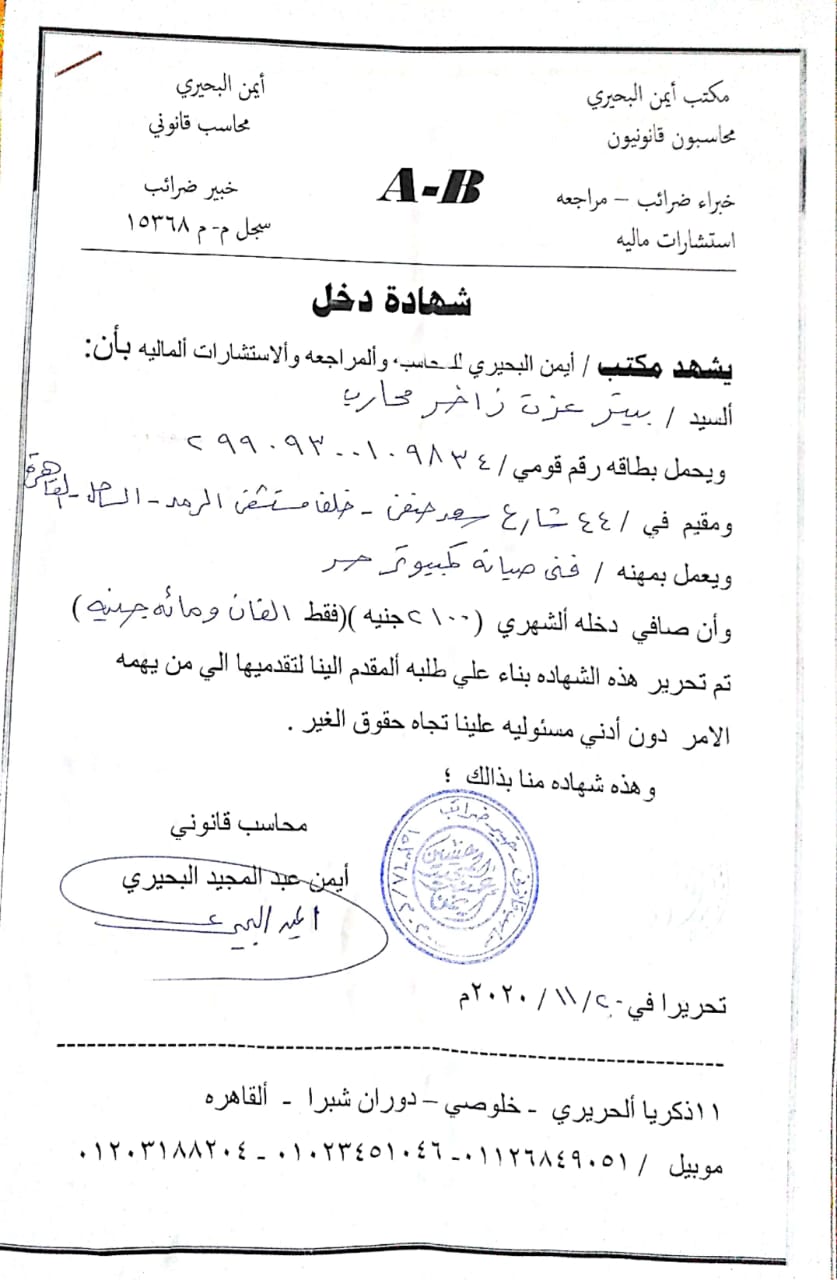 مكتب أيمن البحيري
محاسبون قانونيون
خبراء ضرائب – مراجعه
استشارات ماليه
A-B
أيمن البحيري
محاسب قانوني
خبير ضرائب
سجل م- م ١٥٣٦٨
شهادة دخل
يشهد مكتب / أيمن البحيري للمحاسبه وألمراجعه وألاستشارات ألماليه بأن:
ألسيد / بيتر عزت زاخر محارب
ويحمل بطاقه رقم قومي / ٢٩٩٠٩٣٠٠١٠٩٨٣٤
ومقيم في / ٤٤ شارع سعد حنفى - خلف مستشفى الرمد - الساحل - القاهرة
ويعمل بمهنه / فنى صيانة كمبيوتر حر
وأن صافي دخله ألشهري (٢١٠٠ جنيه )(فقط الفان ومائه جنيه)
تم تحرير هذه الشهاده بناء علي طلبه ألمقدم الينا لتقدميها الي من يهمه
الامر دون أدني مسئوليه علينا تجاه حقوق الغير .
وهذه شهاده منا بذالك ؛
محاسب قانوني
أيمن عبد المجيد البحيري
محاسب قانونى - خبير ضرائب
تحريرا في ٢٠/ ١١/ ٢٠٢٠م
١١ذكريا ألحريري - خلوصي – دوران شبرا - ألقاهره
موبيل / ٠١١٢٦٨٤٩٠٥١- ٠١٠٢٣٤٥١٠٤٦ - ٠١٢٠٣١٨٨٢٠٤